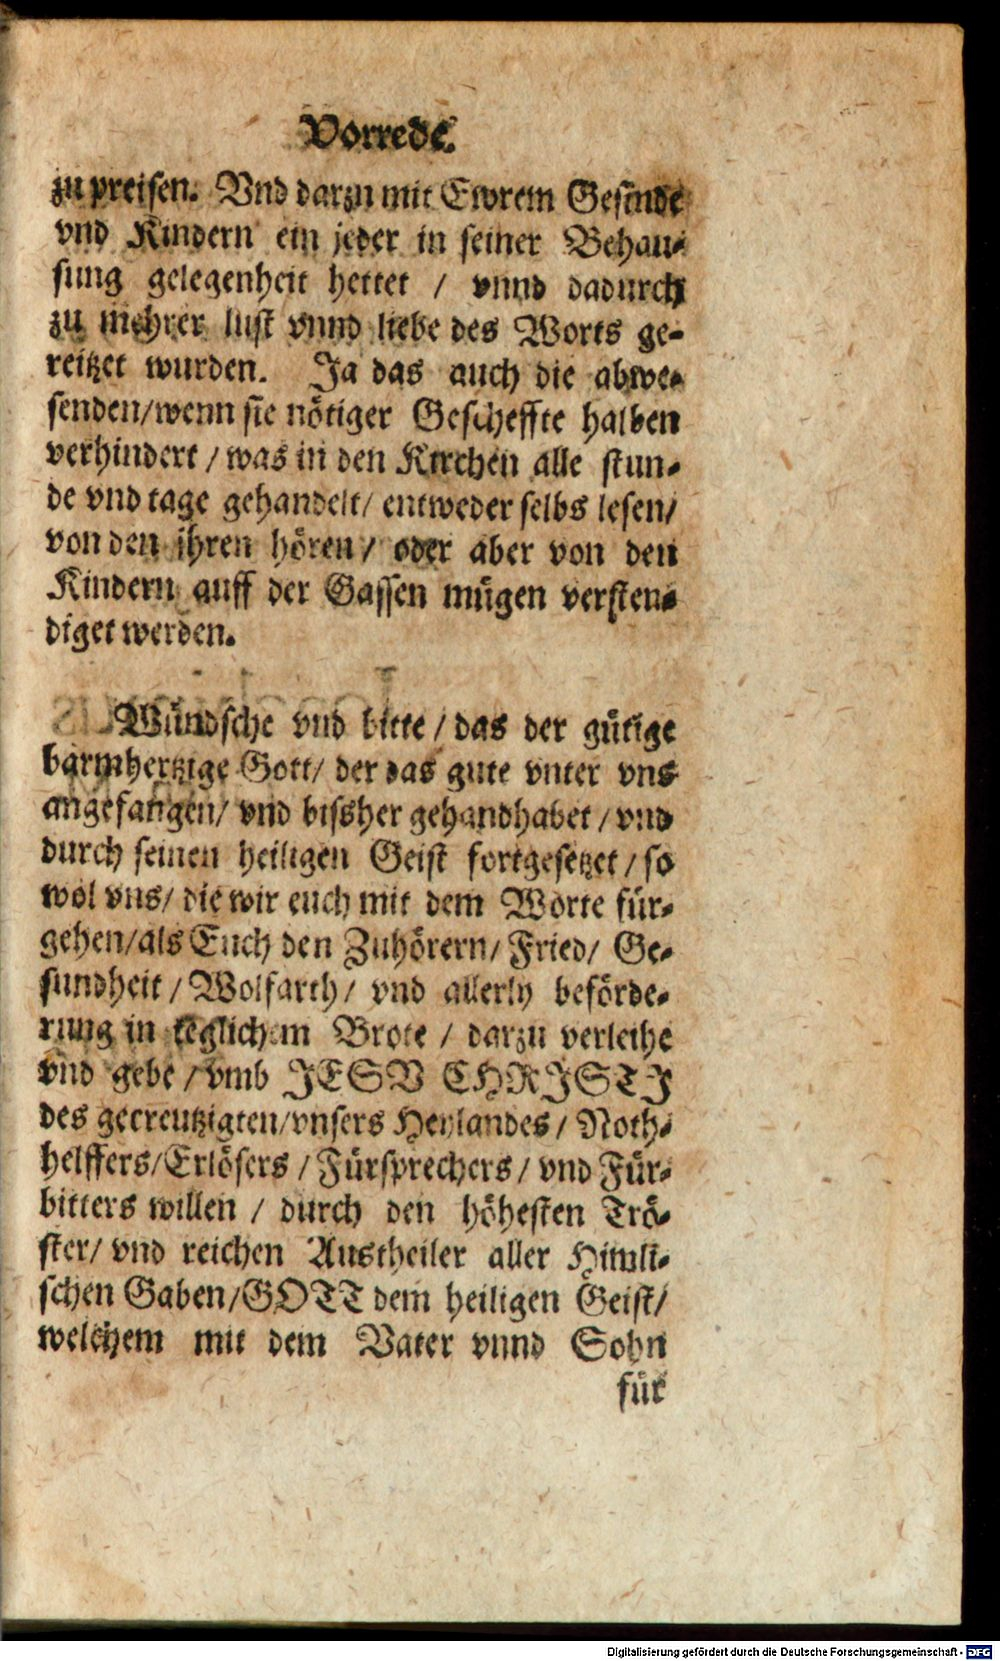 Vorrede.
zu preisen. Vnd darzu mit Ewrem Gesinde
vnd Kindern ein jeder in seiner Behau-
sung gelegenheit hettet / vnnd dadurch
zu mehrer lust vnnd liebe des Worts ge-
reitzet wurden. Ja das auch die abwe-
senden/wenn sie nötiger Gescheffte halben
verhindert / was in den Kirchen alle stun-
de vnd tage gehandelt/ entweder selbs lesen/
von den ihren hören / oder aber von den
Kindern auff der Gassen mügen versten-
diget werden.
Wündsche vnd bitte / das der gütige
barmhertzige Gott/ der das gute vnter vns
angefangen/ vnd bissher gehandhabet / vnd
durch seinen heiligen Geist fortgesetzet / so
wol vns/ die wir euch mit dem Worte für-
gehen/als Euch den Zuhörern/ Fried/ Ge-
sundheit / Wolfarth/ vnd allerly beförde-
rung in teglichem Brote / darzu verleihe
vnd gebe / vmb JESV CHRJSTJ
des gecreutzigten/vnsers Heylandes / Noth-
helffers/Erlösers / Fürsprechers / vnd Für-
bitters willen / durch den höhesten Trö-
ster/ vnd reichen Austheiler aller Himli-
schen Gaben/GOTT dem heiligen Geist/
welchem mit dem Vater vnnd Sohn
für
Digitalisierung gefördert durch die Deutsche Forschungsgemeinschaft - DFG